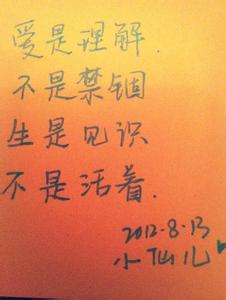 爱是理解.
不是禁锢
生是见识
不是活着.
2012.8.13
小仙儿